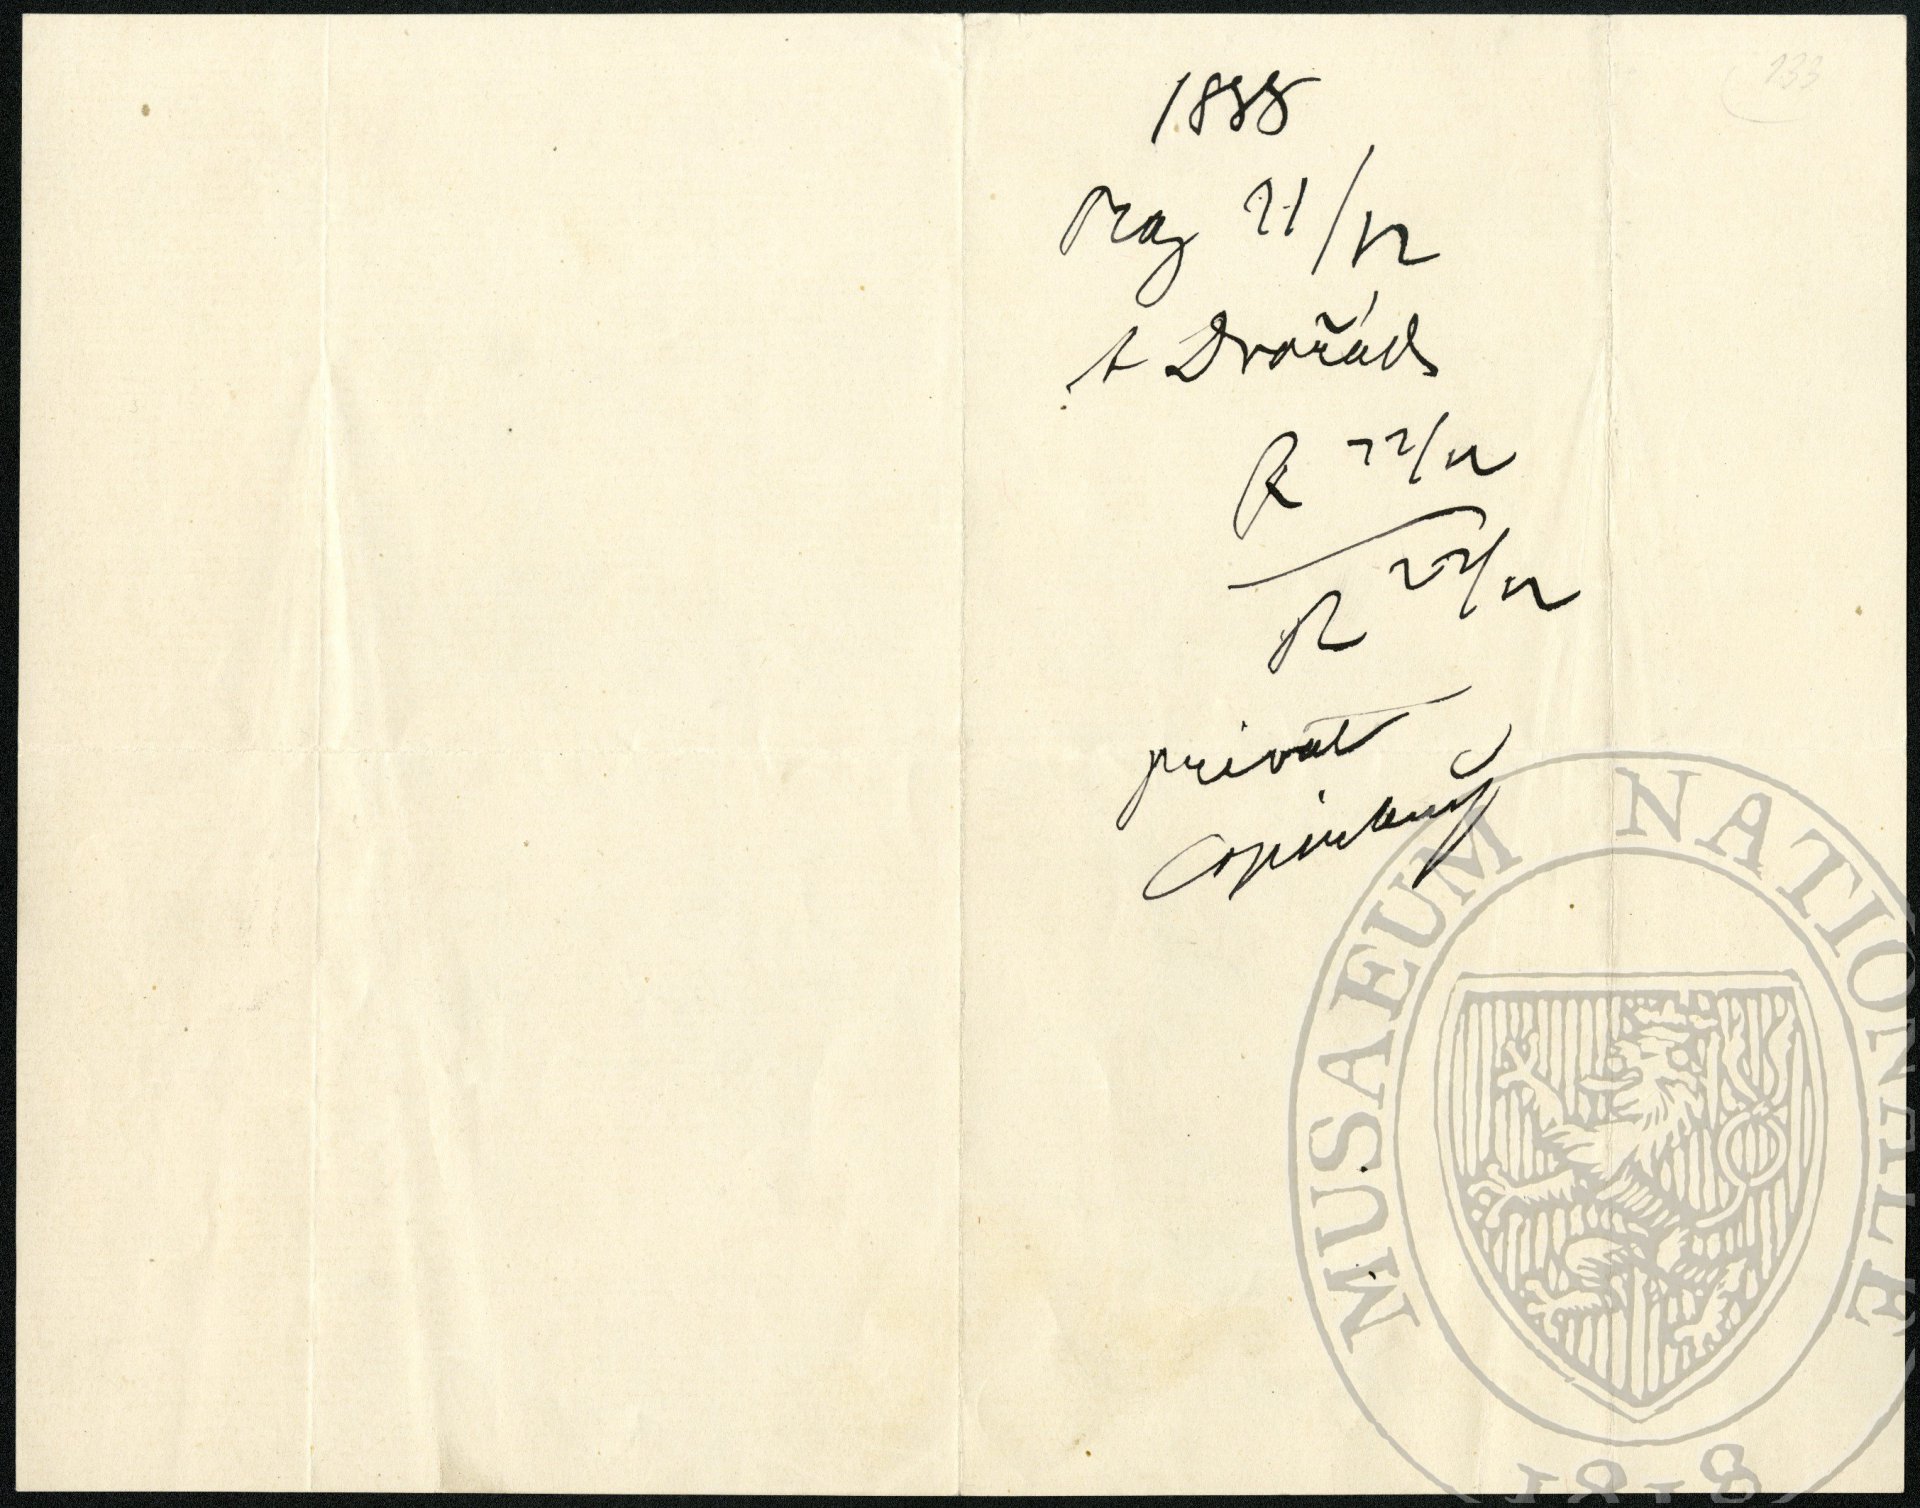 133
1888
Prag 21/12
A Dvořák
R 22/12
R 22/12
privat
Copirbuch
MUSAEUM NATIONALE
1818